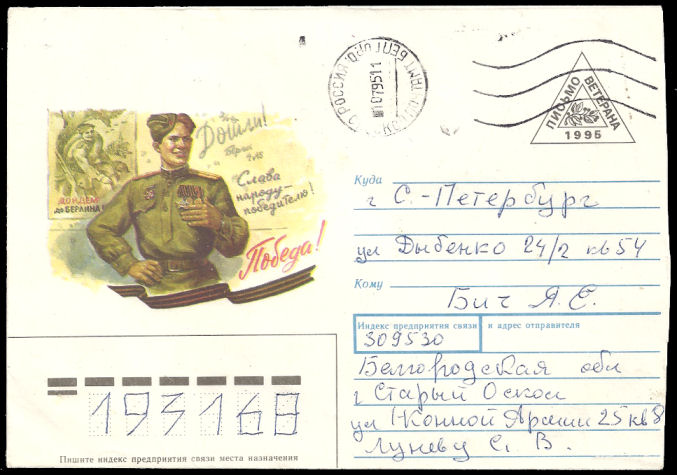 ПИСЬМО ВЕТЕРАНА
1995
Дошли!
Слава
народу—
победителю!
Победа!
ДОЙДЕМ
до БЕРЛИНА!
Куда
г С.-Петербург
ул Дыбенко 24/2 кв 54
Кому
Бич Я.С.
Индекс предприятия связи и адрес отправителя
309530
Белгородская обл
г Старый Оскол
ул 1Конной Армии 25 кв 8
Луневу С. В.
193168
Пишите индекс предприятия связи места назначения